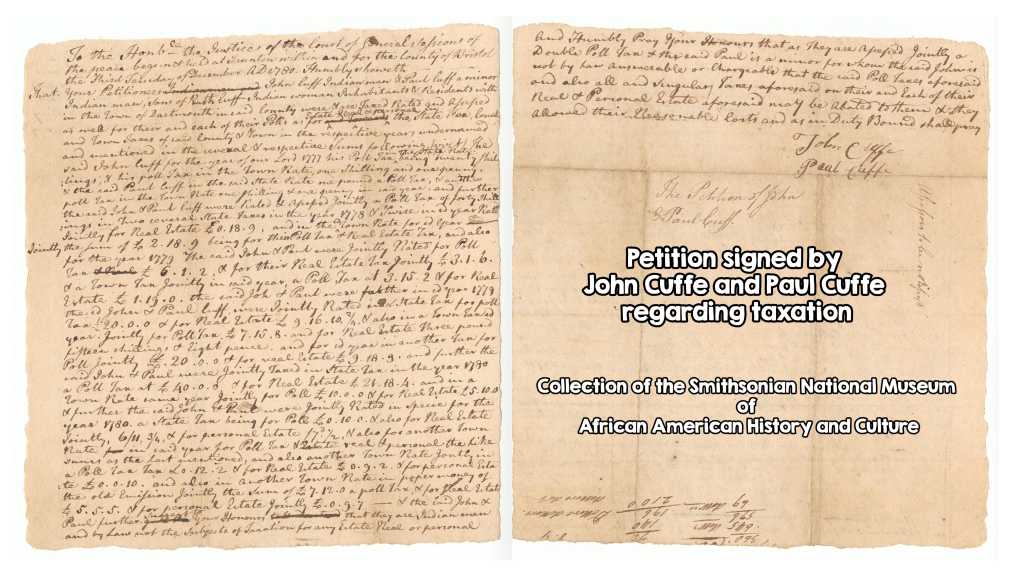 To the Hon.ble the Justices of the Court of General Sessions of
the peace begun & held at Taunton within and for the County of Bristol
the Third Tuesday of December AD 1780. Humbly sheweth
That your Petitioners John Cuff Indian man & Paul Cuff a minor
Indian man, Sons of Ruth Cuff Indian woman Inhabitants & Residents with
in the Town of Dartmouth in said County were & are Taxed Rated and Assessed
as well for their and each of their Polls as for Estate Real & personal the State Tax, County
and Town Taxes of said County & Town in the respective years undernamed
and mentioned in the several & respective Sums following
said John Cuff for the year of our Lord 1777 his Poll Tax being twenty shil
lings, & his poll Tax in the Town Rate, one shilling and one penny.
& the said Paul Cuff in the said State Rate one pound a Poll Tax, & another
poll Tax in the Town Rate one shilling & one penny in said year, and further
the said John & Paul Cuff were Rated & Assessed Jointly a Poll Tax of forty shill
ings in Two several State Taxes in the year 1778 & Twice in id year Rated
Jointly for Real Estate £0.18.9, and in the Town Rate for id year
Jointly the sum of £2.18.9 being for their Poll Tax & Real Estate Tax, and also
for the year 1779 The said John & Paul were Jointly Rated for Poll
Tax £6.1.2, & for their Real Estate Tax Jointly £3.1.6.
& a Town Tax Jointly in said year, a Poll Tax at 3.15.2 & for Real
Estate £1.19.0. the said John & Paul were further in id year 1779
the id John & Paul Cuff, were Jointly Rated in State Tax for poll
Tax £20.0.0 & for Real Estate £9.16.10¾. & also in a Town Tax id
year. Jointly for Poll Tax £7.15.8. and for Real Estate Three pound
fifteen shillings & Eight pence. and for id year in another Tax for
Poll Jointly £20.0.0 & for real Estate £9.18.9. and further the
said John & Paul were Jointly Taxed in State Tax in the year 1780
a Poll Tax at £40.0.0 & for Real Estate £21.18.4. and in a
Town Rate same year Jointly for Poll £10.0.0 & for Real Estate £5.10.0
& further the said John & Paul were Jointly Rated in specie for the
year 1780. a State Tax being for Poll £0.10.0. & also for Real Estate
Jointly, 6/11¾, & for personal Estate & also for another Town
Rate in said year for Poll Tax & Estate real & personal the like
sums as the Last mentioned, and also another Town Rate Jointly in
a Poll Tax Tax £0.12.2 & for Real Estate £0.9.2. & for personal Esta
te £0.0.10. and also in another Town Rate in paper money of
the old Emission Jointly the Sum of £7.12.0 a poll Tax & for Real Estate
£5.5.5. & for personal Estate Jointly £0.9.7 & the said John &
Paul further your Honours that they are Indian men
and by Law not the Subjects of Taxation for any Estate Real or personal
And Humbly Pray Your Honours that as They are Assessed Jointly a
Double Poll Tax & the said Paul is a minor for whom the said John is
not by Law Answerable or Chargeable that the said Poll Taxes aforesaid
and also all and singular Taxes aforesaid on their and Each of their
Real & Personal Estate aforesaid may be Abated to them & they
allowed their Cost and as in Duty Bound shall pray
John Cuffe
Paul Cuffe
The Petition of John
& Paul Cuff
Petition signed by
John Cuffe and Paul Cuffe
regarding taxation
Collection of the Smithsonian National Museum
of
African American History and Culture